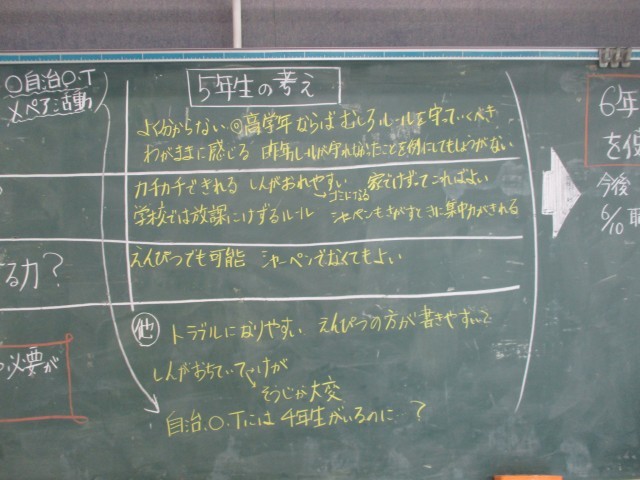 〇自治〇.T
×ペア活動
5年生の考え
よく分からない ◎高学年ならば むしろルールを守っていくべき
わがままに感じる 昨年ルールが守れなかったことを例にしてもしょうがない
カチカチできれる しんがおれやすい 家でけずってこればよい
→ゴミになる
学校では放課にけずるルール シャーペンもさがすときに集中力がきれる
る力?
えんぴつでも可能 シャーペンでなくてもよい
他 トラブルになりやすい えんぴつの方が書きやすい
必要が
しんがおちていてけが
そうじが大変
自治.O.Tには 4年生がいるのに ?
6年
を
今後
6/10